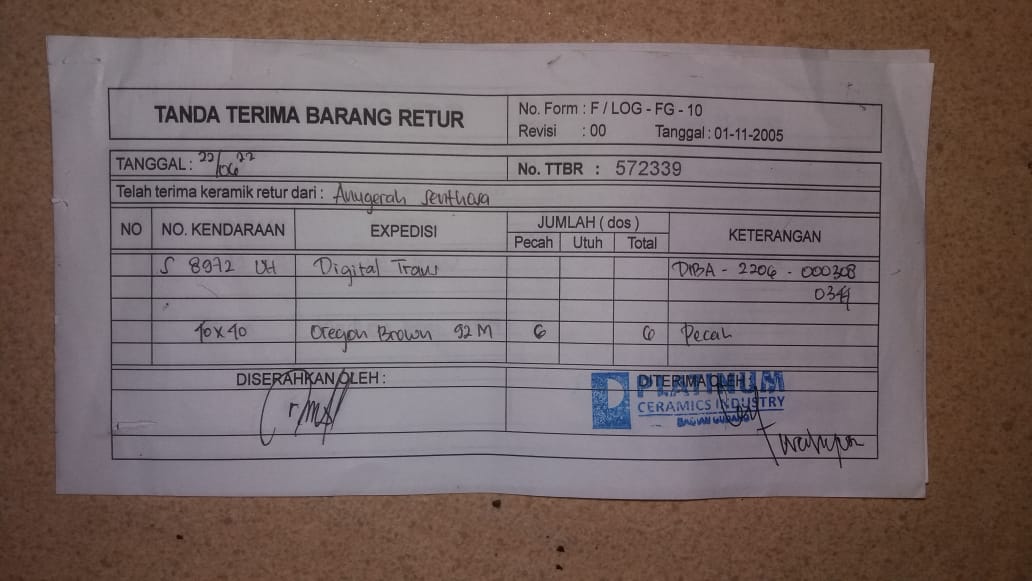 TANDA TERIMA BARANG RETUR
No. Form : F / LOG - FG - 10
Revisi : 00 Tanggal : 01-11-2005
TANGGAL : 22/06 22
No. TTBR : 572339
Telah terima keramik retur dari : Anugerah
NO NO. KENDARAAN EXPEDISI JUMLAH ( dos ) KETERANGAN
Pecah Utuh Total
S 8972 UH Digital Trans DIBA - 2206 - 000308
40x40 Oregon Brown 92 M 6 6 Pecah
DISERAHKAN OLEH : DITERIMA OLEH :
PLATINUM
CERAMICS INDUSTRY
BAGIAN GUDANG